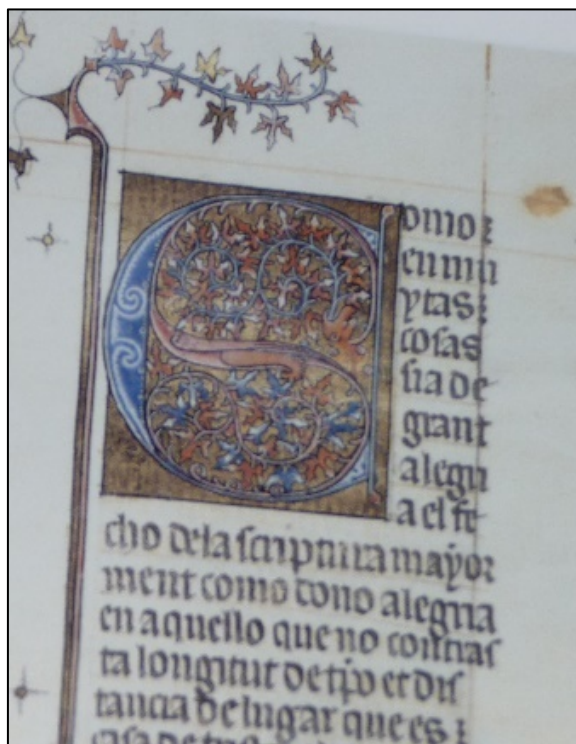 Comoz
en mu
ytasz
cosas
sia de
grant
alegri
a el fe
cho dela scriptura mayor
ment como dono alegria
en aquello que no contras
ta longitut de tpo et dis
tancia de lugar que es z